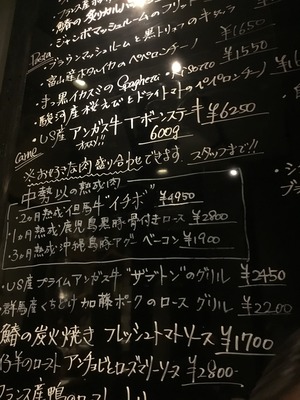 ジャンボマッシュルームのフリット
Pasta
ブラウンマッシュルームと黒トリュフの
¥1650
・富山産ホタルイカのペペロンチーノ ¥1550
・まっ黒イカスミの Spaghetti
・駿河産桜えびとドライトマトのペペロンチーノ
・US産 アンガス牛Tボーンステーキ ¥6250
600g
Carne
※おまかせお肉盛り合わせできます スタッフまで!!
中勢以の熟成肉
・2ヶ月熟成但馬牛“イチボ” ¥4950
・1ヶ月熟成鹿児島黒豚骨付きロース ¥2800
・3ヶ月熟成沖縄島豚アグーベーコン ¥1900
・US産プライムアンガス牛“ザブトン”のグリル ¥2450
・群馬産くちどけ加藤ポークのロース グリル ¥2200
鰆の炭火焼き フレッシュトマトソース ¥1700
仔羊のロースト アンチョビとローズマリーソース ¥2800-
フランス産鴨のロースト